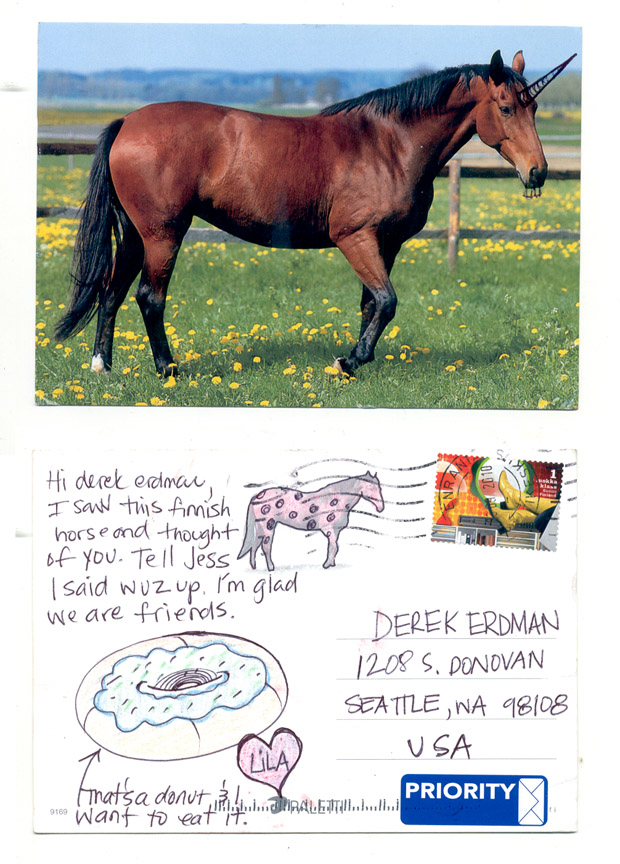 Hi derek erdman,
I saw this finnish
horse and thought
of you. Tell Jess
I said wuz up. I'm glad
we are friends.
1
DEREK ERDMAN
1208 S. DONOVAN
SEATTLE, WA 98108
USA
LILA
that's a donut & I
want to eat it.
PRIORITY
9169
PALETTI